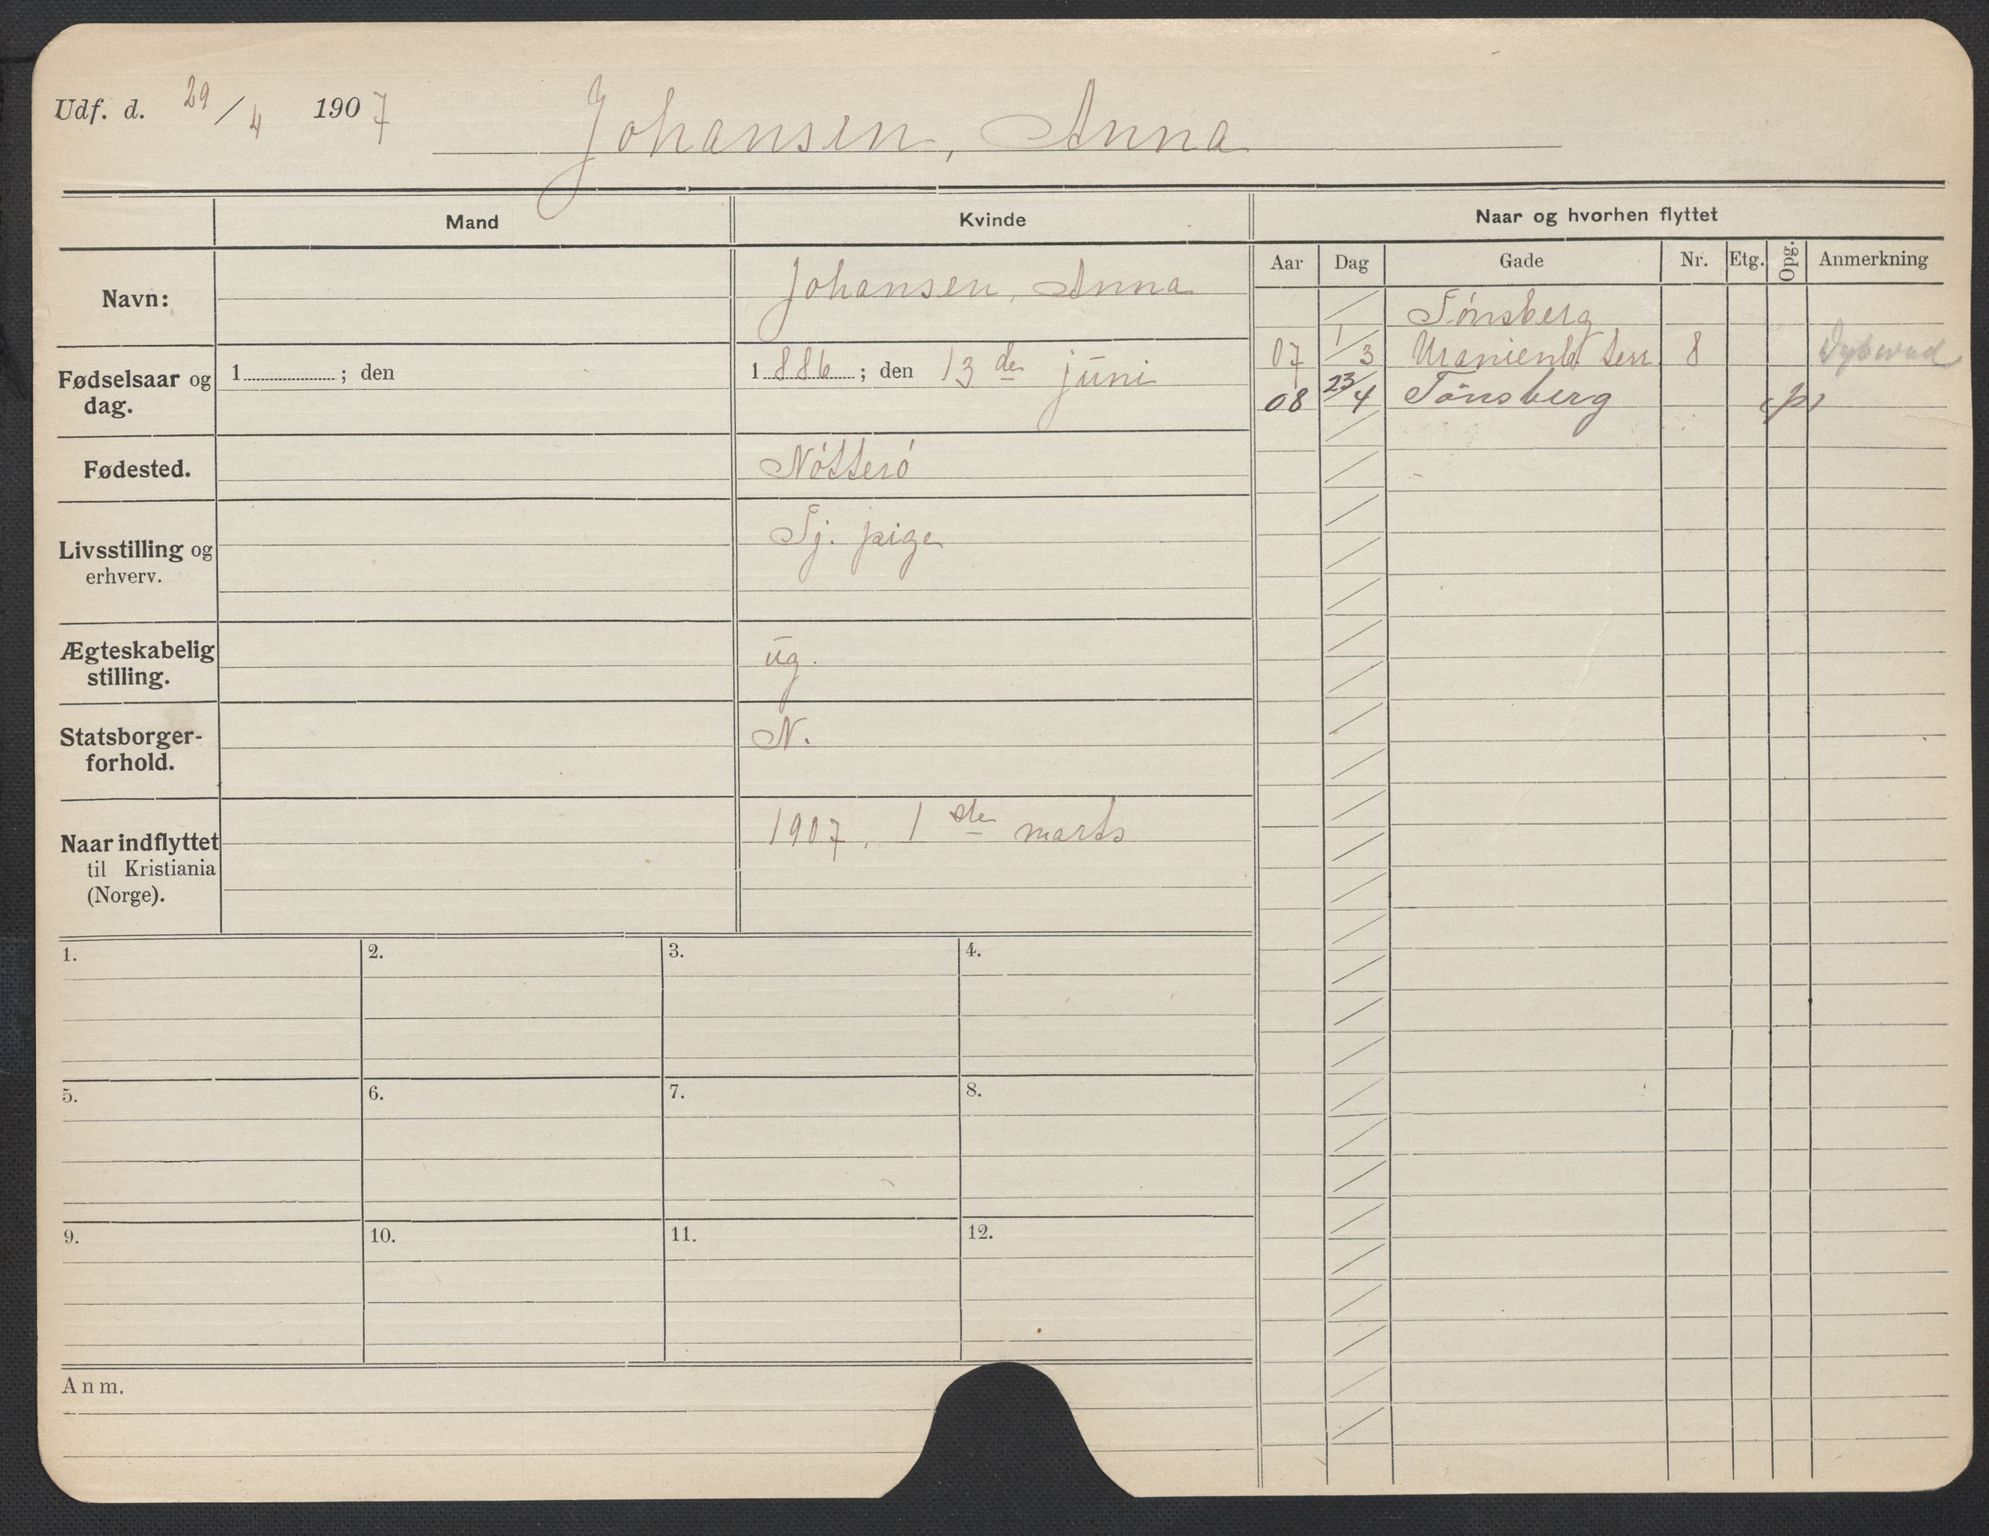 Udf. d. 29/4 1907 Johansen, Anna
Mand Kvinde Naar og hvorhen flyttet
Aar Dag Gade Nr. Etg. Opg. Anmerkning
Navn: Johansen, Anna
Fødselsaar og dag. 1 ; den 1886 ; den 13de juni
Fødested. Nótteró
Livsstilling og erhverv. Tj. pige
Ægteskabelig stilling. ug.
Statsborgerforhold. N.
Naar indflyttet til Kristiania (Norge). 1907, 1ste marts
Tónsberg
07 1/3 Uranienb. terr. 8 Dybwad
08 23/4 Tönsberg p)
1. 2. 3. 4.
5. 6. 7. 8.
9. 10. 11. 12.
Anm.